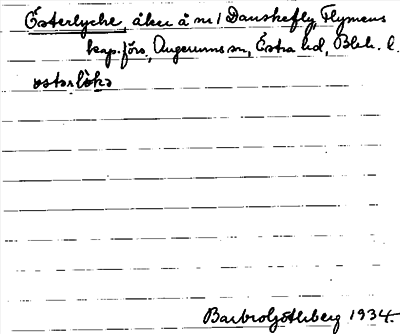 Österlycke, åker å nr 1 Danskefly, Flymens
kap. förs, Augerums sn, Östra hd, Blek. l.
østərlökə
Barbro Götherberg 1934.